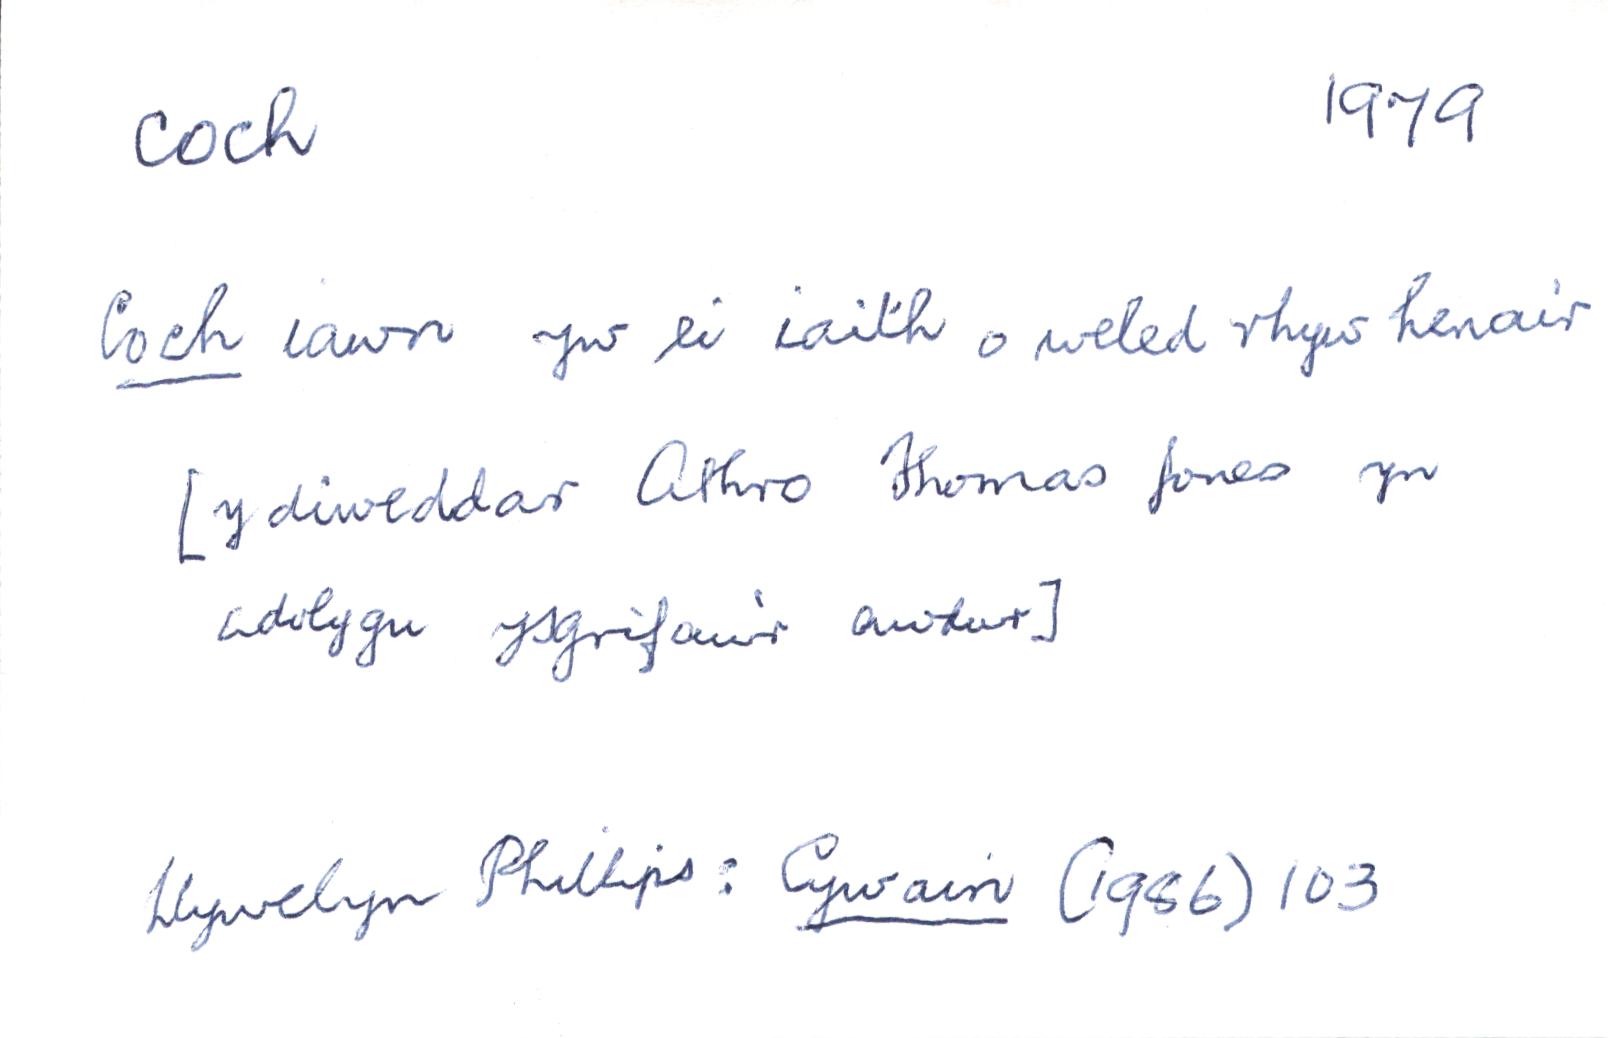 coch 1979
Coch iawn yw ei iaith o weled rhyw henair
[y diweddar Athro Thomas Jones yn
adolygu ysgrifau'r awdur]
Llywelyn Phillips: Cywain (1986) 103